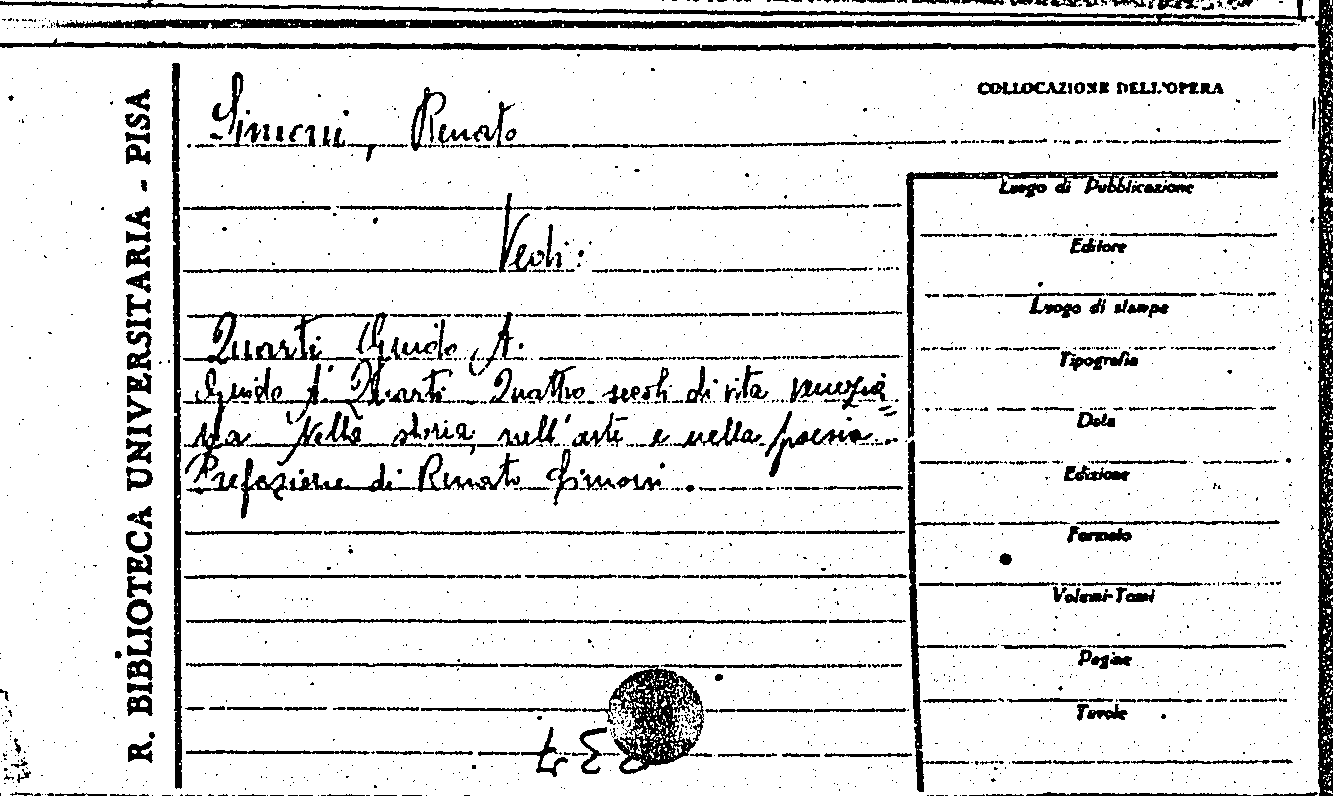 R. BIBLIOTECA UNIVERSITARIA - PISA
COLLOCAZIONE DELL'OPERA
Simoni, Renato
Vedi:
Quarti Guido A.
Guido A. Quarti Quattro secoli di vita venezia=
na Nella storia, nell'arte e nella poesia.
Prefazione di Renato Simoni.
Luogo di Pubblicazione
Editore
Luogo di stampa
Tipografia
Data
Edizione
Formato
Volumi-Tomi
Pagine
Tavole